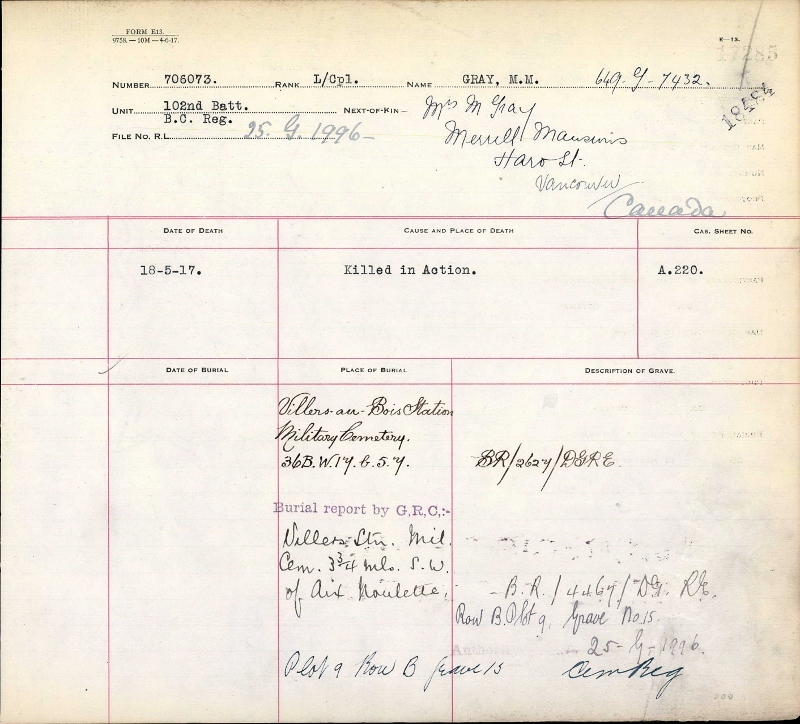 FORM E13.
9758.—10M—4-6-17.
E—13.
17285
NUMBER 706073. RANK L/Cpl. NAME GRAY, M.M. 649-G-7432.
18484
UNIT 102nd Batt.
B.C. Reg.
NEXT-OF-KIN— Mrs M Gray
Merrill Mansions
Haro St.
Vancouver
Canada
FILE NO. R.L. 25. G. 1996—
DATE OF DEATH CAUSE AND PLACE OF DEATH CAS. SHEET NO.
18-5-17. Killed in Action. A.220.
DATE OF BURIAL PLACE OF BURIAL DESCRIPTION OF GRAVE.
Villers-au-Bois Station
Military Cemetery.
36B.W.17.b.5.7. BR/2627/DGRE.
Burial report by G.R.C,:-
Villers Stn. Mil.
Cem. 3 3/4 mls. S.W.
of Aix Noulette. — B.R./4467/DG. RE.
Row B. Plot 9, Grave No.15.
25-G-1996.
Plot 9 Row B Grave 15 Cem Reg